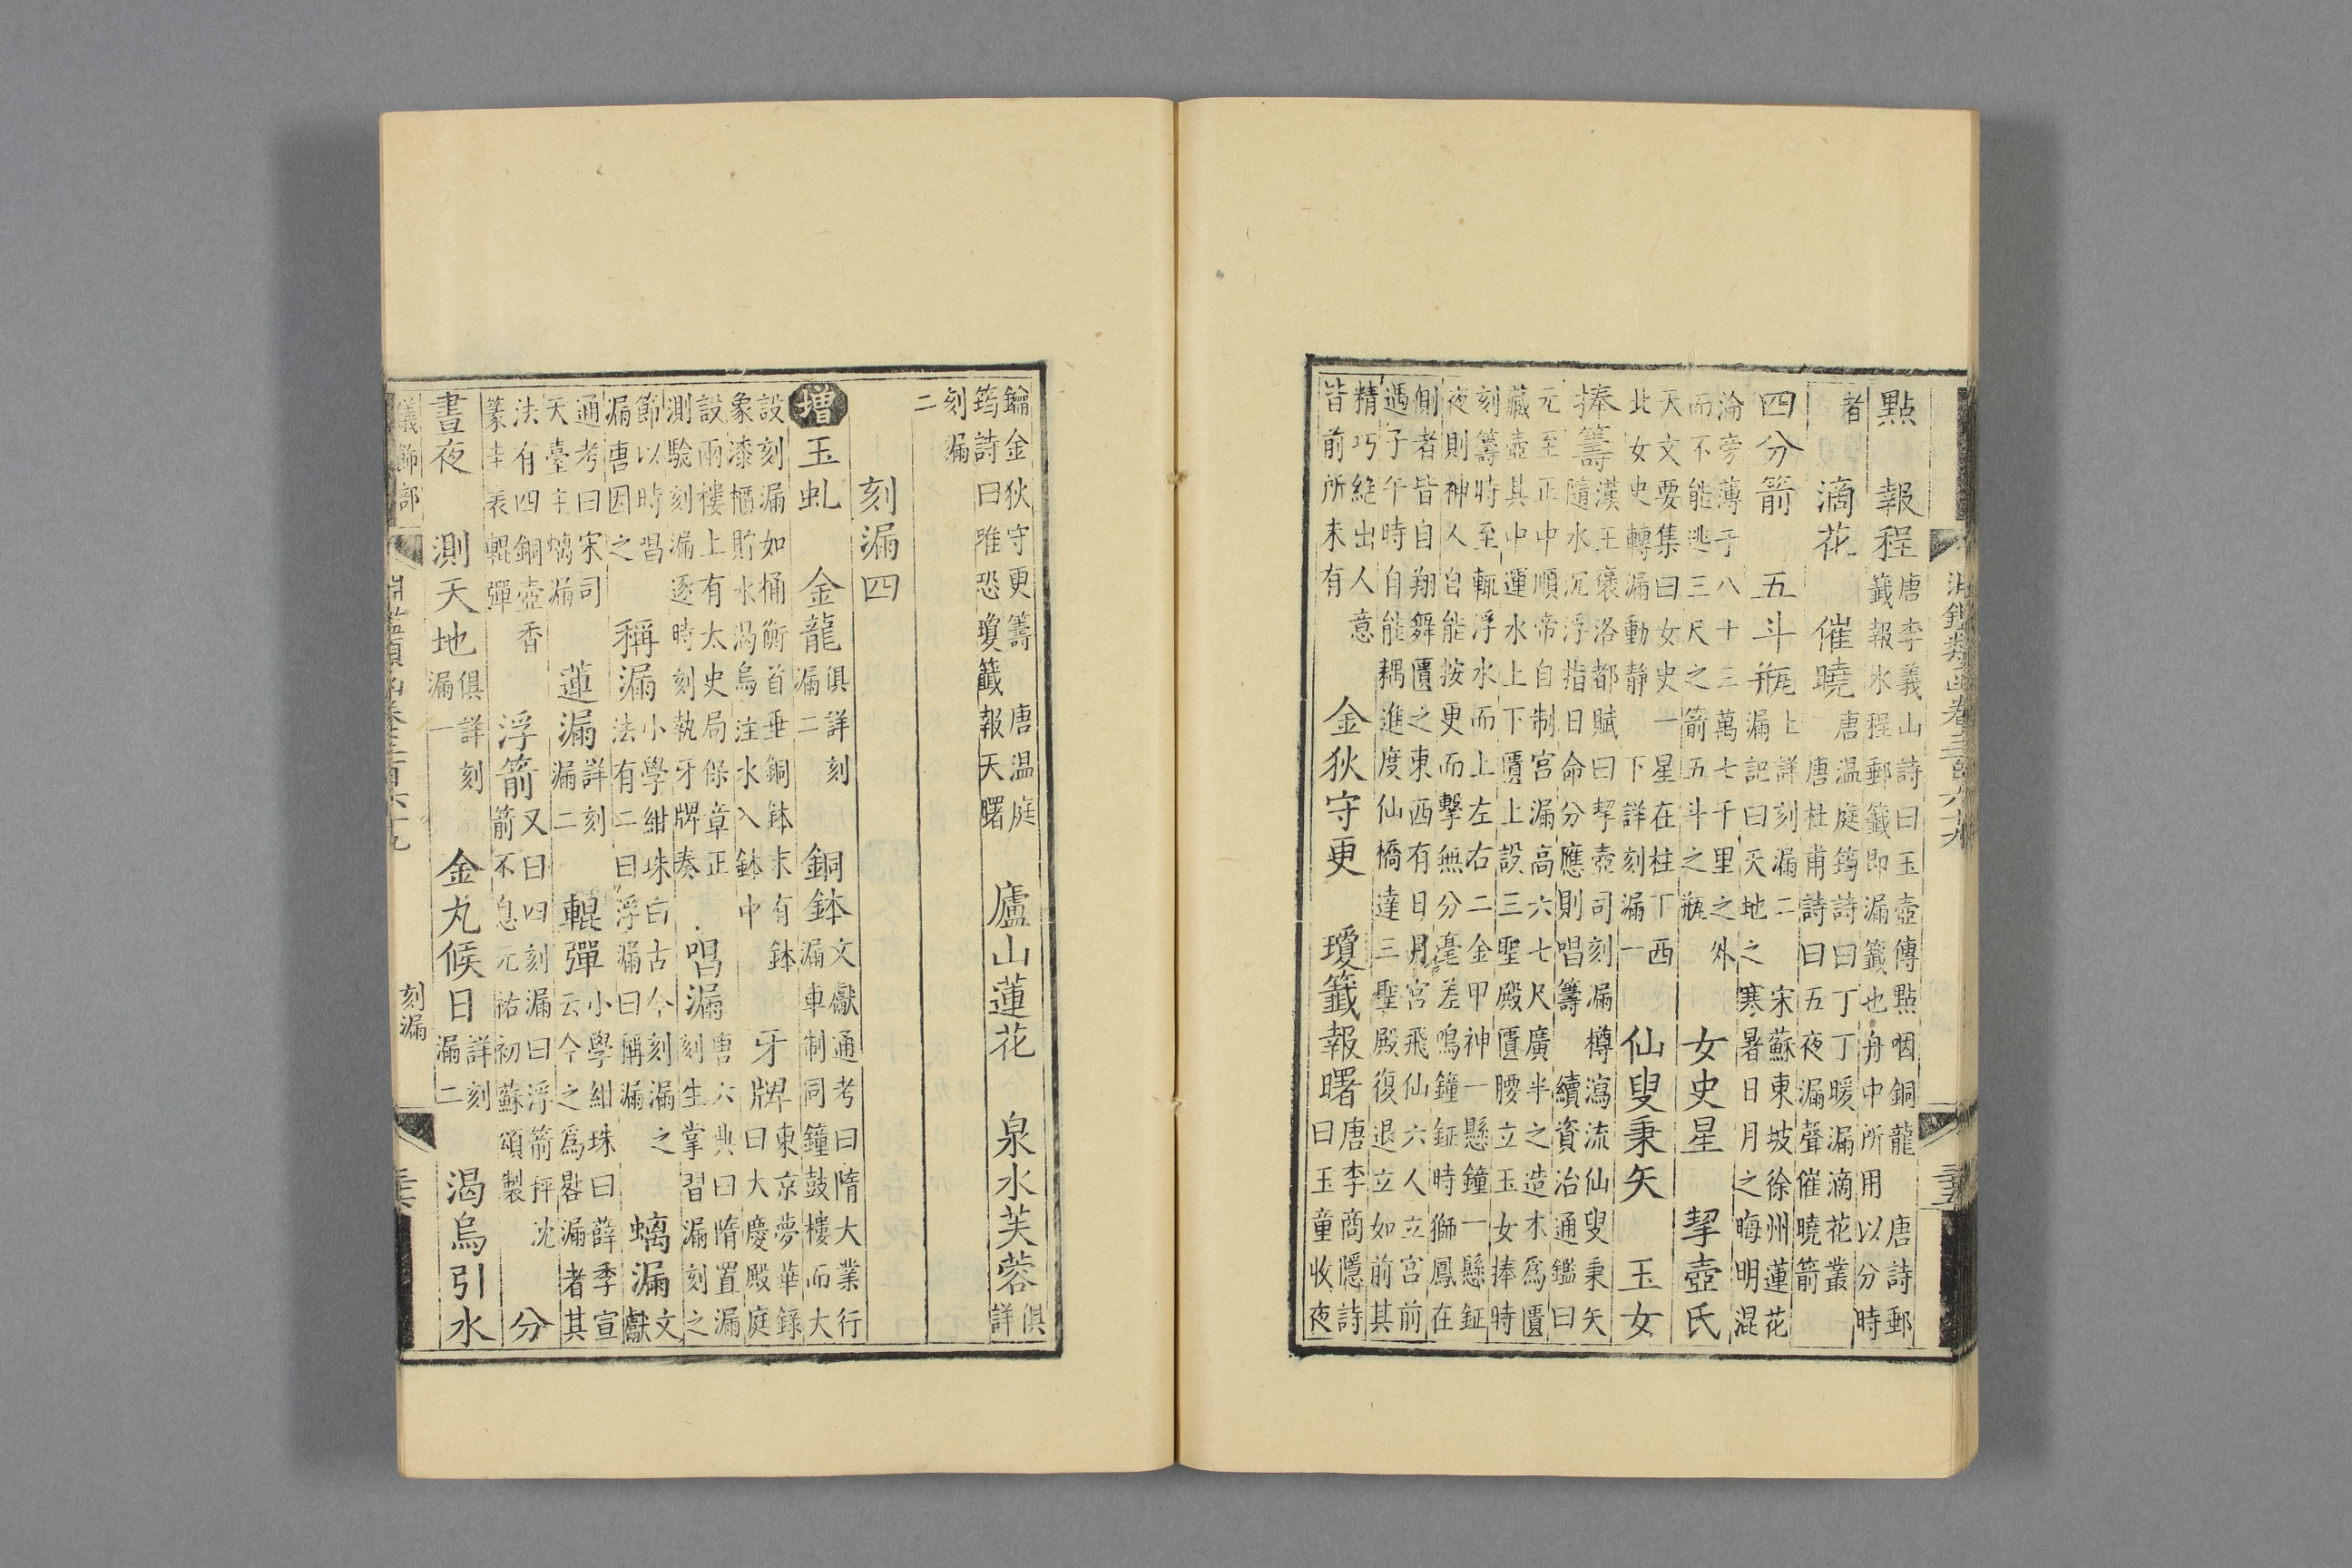 淵鑑類函卷三百六十九
點　報程
唐李義山詩曰玉壺傳點咽銅龍　唐詩郵
籤報水程郵籤即漏籤也舟中所用以分時
者
滴花　催曉
唐温庭筠詩曰丁丁暖漏滴花叢
唐杜甫詩曰五夜漏聲催曉箭
四分箭　五斗瓶
上詳刻漏二　宋蘇東坡徐州蓮花
漏記曰天地之寒暑日月之晦明混
淪旁薄于八十三萬七千里之外
而不能逃三尺之箭五斗之瓶
女史星　挈壺氏
天文要集曰女史一星在柱下西
北女史轉漏動静　下詳刻漏一
仙叟秉矢　玉女
捧籌
漢王褒洛都賦曰挈壺司刻漏樽瀉流仙叟秉矢
隨水沉浮指日命分應則唱籌　續資治通鑑曰
元至正中順帝自制宮漏高六七尺廣半之造木為匱
藏壺其中運水上下匱上設三聖殿匱腰立玉女捧時
刻籌時至輒浮水而上左右二金甲神一懸鐘一懸鉦
夜則神人自能按更而擊無分毫差鳴鐘鉦時獅鳳在
側者皆自翔舞匱之東西有日月宮飛仙六人立宮前
遇子午時自能耦進度仙橋達三聖殿復退立如前其
精巧絶出人意
皆前所未有
金狄守更　瓊籤報曙
唐李商隱詩
曰玉童收夜
鑰金狄守更籌　唐温庭
筠詩曰唯恐瓊籤報天曙
廬山蓮花　泉水芙蓉
俱
詳
刻漏
二
刻漏四
增　玉虬　金龍
俱詳刻
漏二
銅鉢
文獻通考曰隋大業行
漏車制同鐘鼓樓而大
設刻漏如桶衡首垂銅鉢末有鉢
象漆櫃貯水渴烏注水入鉢中
牙牌
東京夢華録
曰大慶殿庭
設兩樓上有太史局保章正
測驗刻漏逐時刻執牙牌奏
唱漏
唐六典曰隋置漏
刻生掌習漏刻之
節以時唱
漏唐因之
稱漏
小學紺珠曰古今刻漏之
法有二曰浮漏曰稱漏
螭漏
文
獻
通考曰宋司
天臺主螭漏
蓮漏
詳刻
漏二
輥彈
小學紺珠曰薛季宣
云今之為晷漏者其
法有四銅壺香
篆圭表輥彈
浮箭
又曰四刻漏曰浮箭抨沈
箭不息元祐初蘇頌製
分
晝夜　測天地
俱詳刻
漏一
金丸候日
詳刻
漏二
渴烏引水
儀飾部　淵鑑類函卷三百六十九　刻漏